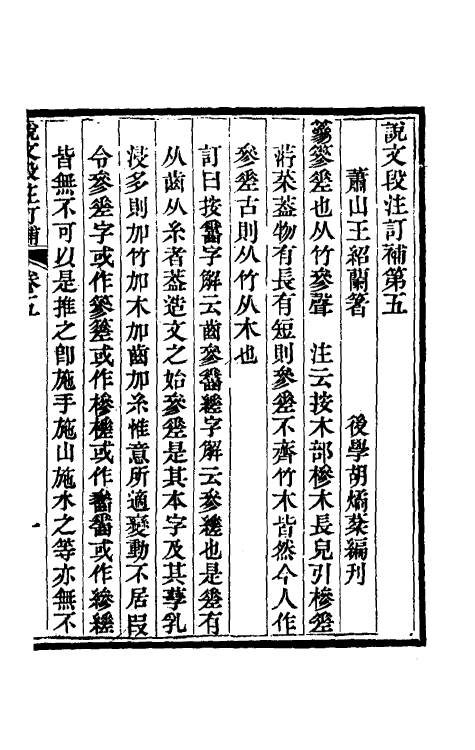 說文段注訂補第五
蕭山王紹蘭箸　後學胡燏棻編刊
篸篸差也从竹參聲　注云按木部槮木長皃引槮差
荇菜蓋物有長有短則參差不齊竹木皆然今人作
參差古則从竹从木也
訂曰按䶥字解云齒參䶥縒字解云參縒也是差有
从齒从糸者蓋造文之始參差是其本字及其孳乳
浸多則加竹加木加齒加糸惟意所適變動不居叚
令參差字或作篸䇟或作槮槎或作䶥或作縿縒
皆無不可以是推之卽施手施山施水之等亦無不
說文段注訂補　卷五　一